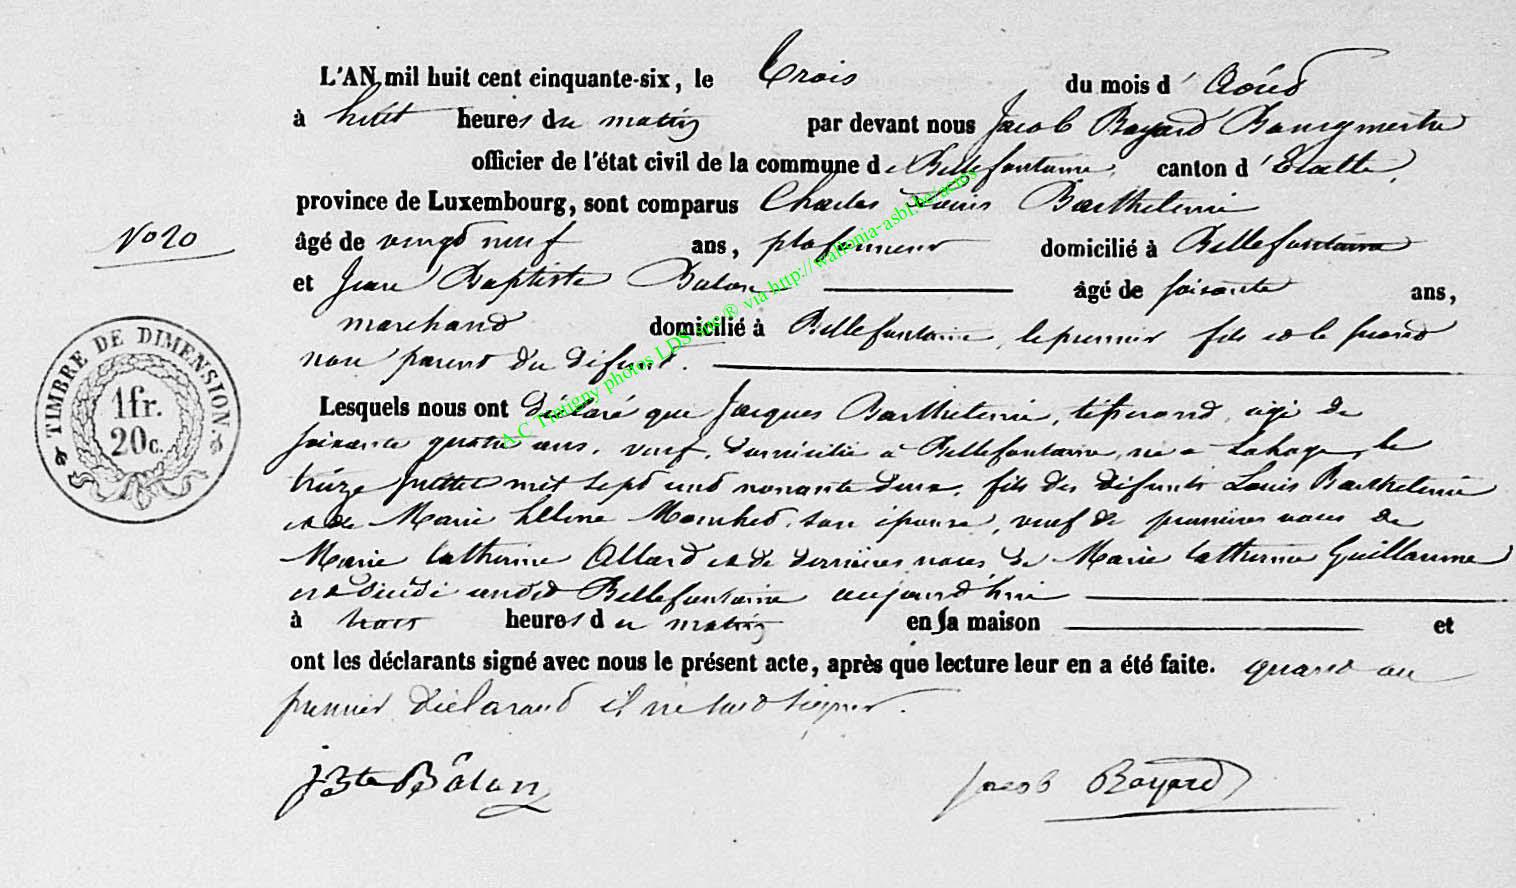 L'AN mil huit cent cinquante-six, le Trois du mois d'Août
à huit heures du matin par devant nous Jacob Bayard Bourgmestre
officier de l'état civil de la commune de Bellefontaine, canton d'Etalle,
province de Luxembourg, sont comparus Charles Louis Barthelemi
No 20
âgé de vingt neuf ans, plafonneur domicilié à Bellefontaine
et Jean Baptiste Balon âgé de soixante ans,
marchand domicilié à Bellefontaine, le premier fils et le second
non parent du défunt.
A.C Tintigny photos LDS ® via http://wallonia-asbl.be/actes
TIMBRE DE DIMENSION
1fr.
20c.
Lesquels nous ont déclaré que Jacques Barthelemi, tisserand, âgé de
soixante quatre ans, veuf, domicilié à Bellefontaine, né à Lahage, le
treize juillet mil sept cent nonante deux, fils des défunts Louis Barthelemi
et de Marie Hélène son épouse, veuf de premières noces de
Marie Catherine Allard et de dernières noces de Marie Catherine Guillaume
est décédé audit Bellefontaine aujourd'hui
à trois heures du matin en sa maison et
ont les déclarants signé avec nous le présent acte, après que lecture leur en a été faite. quant au
premier déclarant il ne sait signer.
JBte Bâlon Jacob Bayard